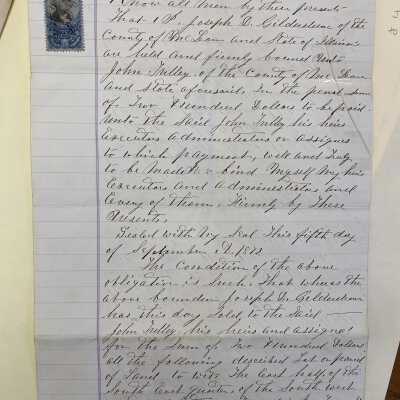 Know all men by these presents
That I P. Joseph D. Gildersleeve of the
County of McLean and State of Illinois
are held and firmly bound unto
John Tulley of the County of McLean
and State aforesaid. In the penal sum
of Two Hundred Dollars to be paid
unto the Said John Tulley his heirs
Executors administrators or assigns
to which payment, well and truly
to be made I bind Myself My heirs
Executors and Administrators and
Every of them Firmly by These
Presents.
Sealed with my Seal This fifth day
of September A.D. 1872
The Condition of the above
obligation is Such. That whereas the
above bounden Joseph D. Gildersleeve
has this day Sold to the Said
John Tulley his heirs and assigns
for the Sum of Two Hundred Dollars
all the following described Lot or parcel
of Land to wit. The East half of the
South East quarter of the South west